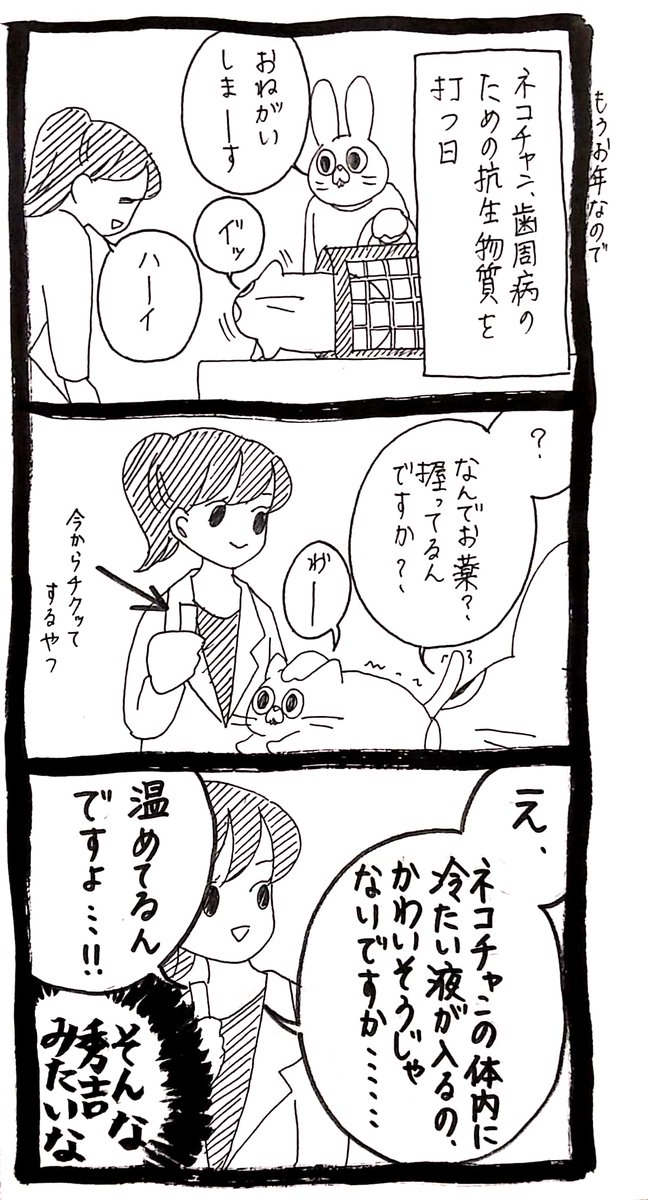 もうお年なので
ネコチャン、歯周病の
ための抗生物質を
打つ日
おねがい
しまーす
ハーイ
？
なんでお薬？
握ってるん
ですか？
今からチクッて
するやつ
え、
ネコチャンの体内に
冷たい液が入るの、
かわいそうじゃ
ないですか……
温めてるん
ですよ…!!
そんな
秀吉
みたいな